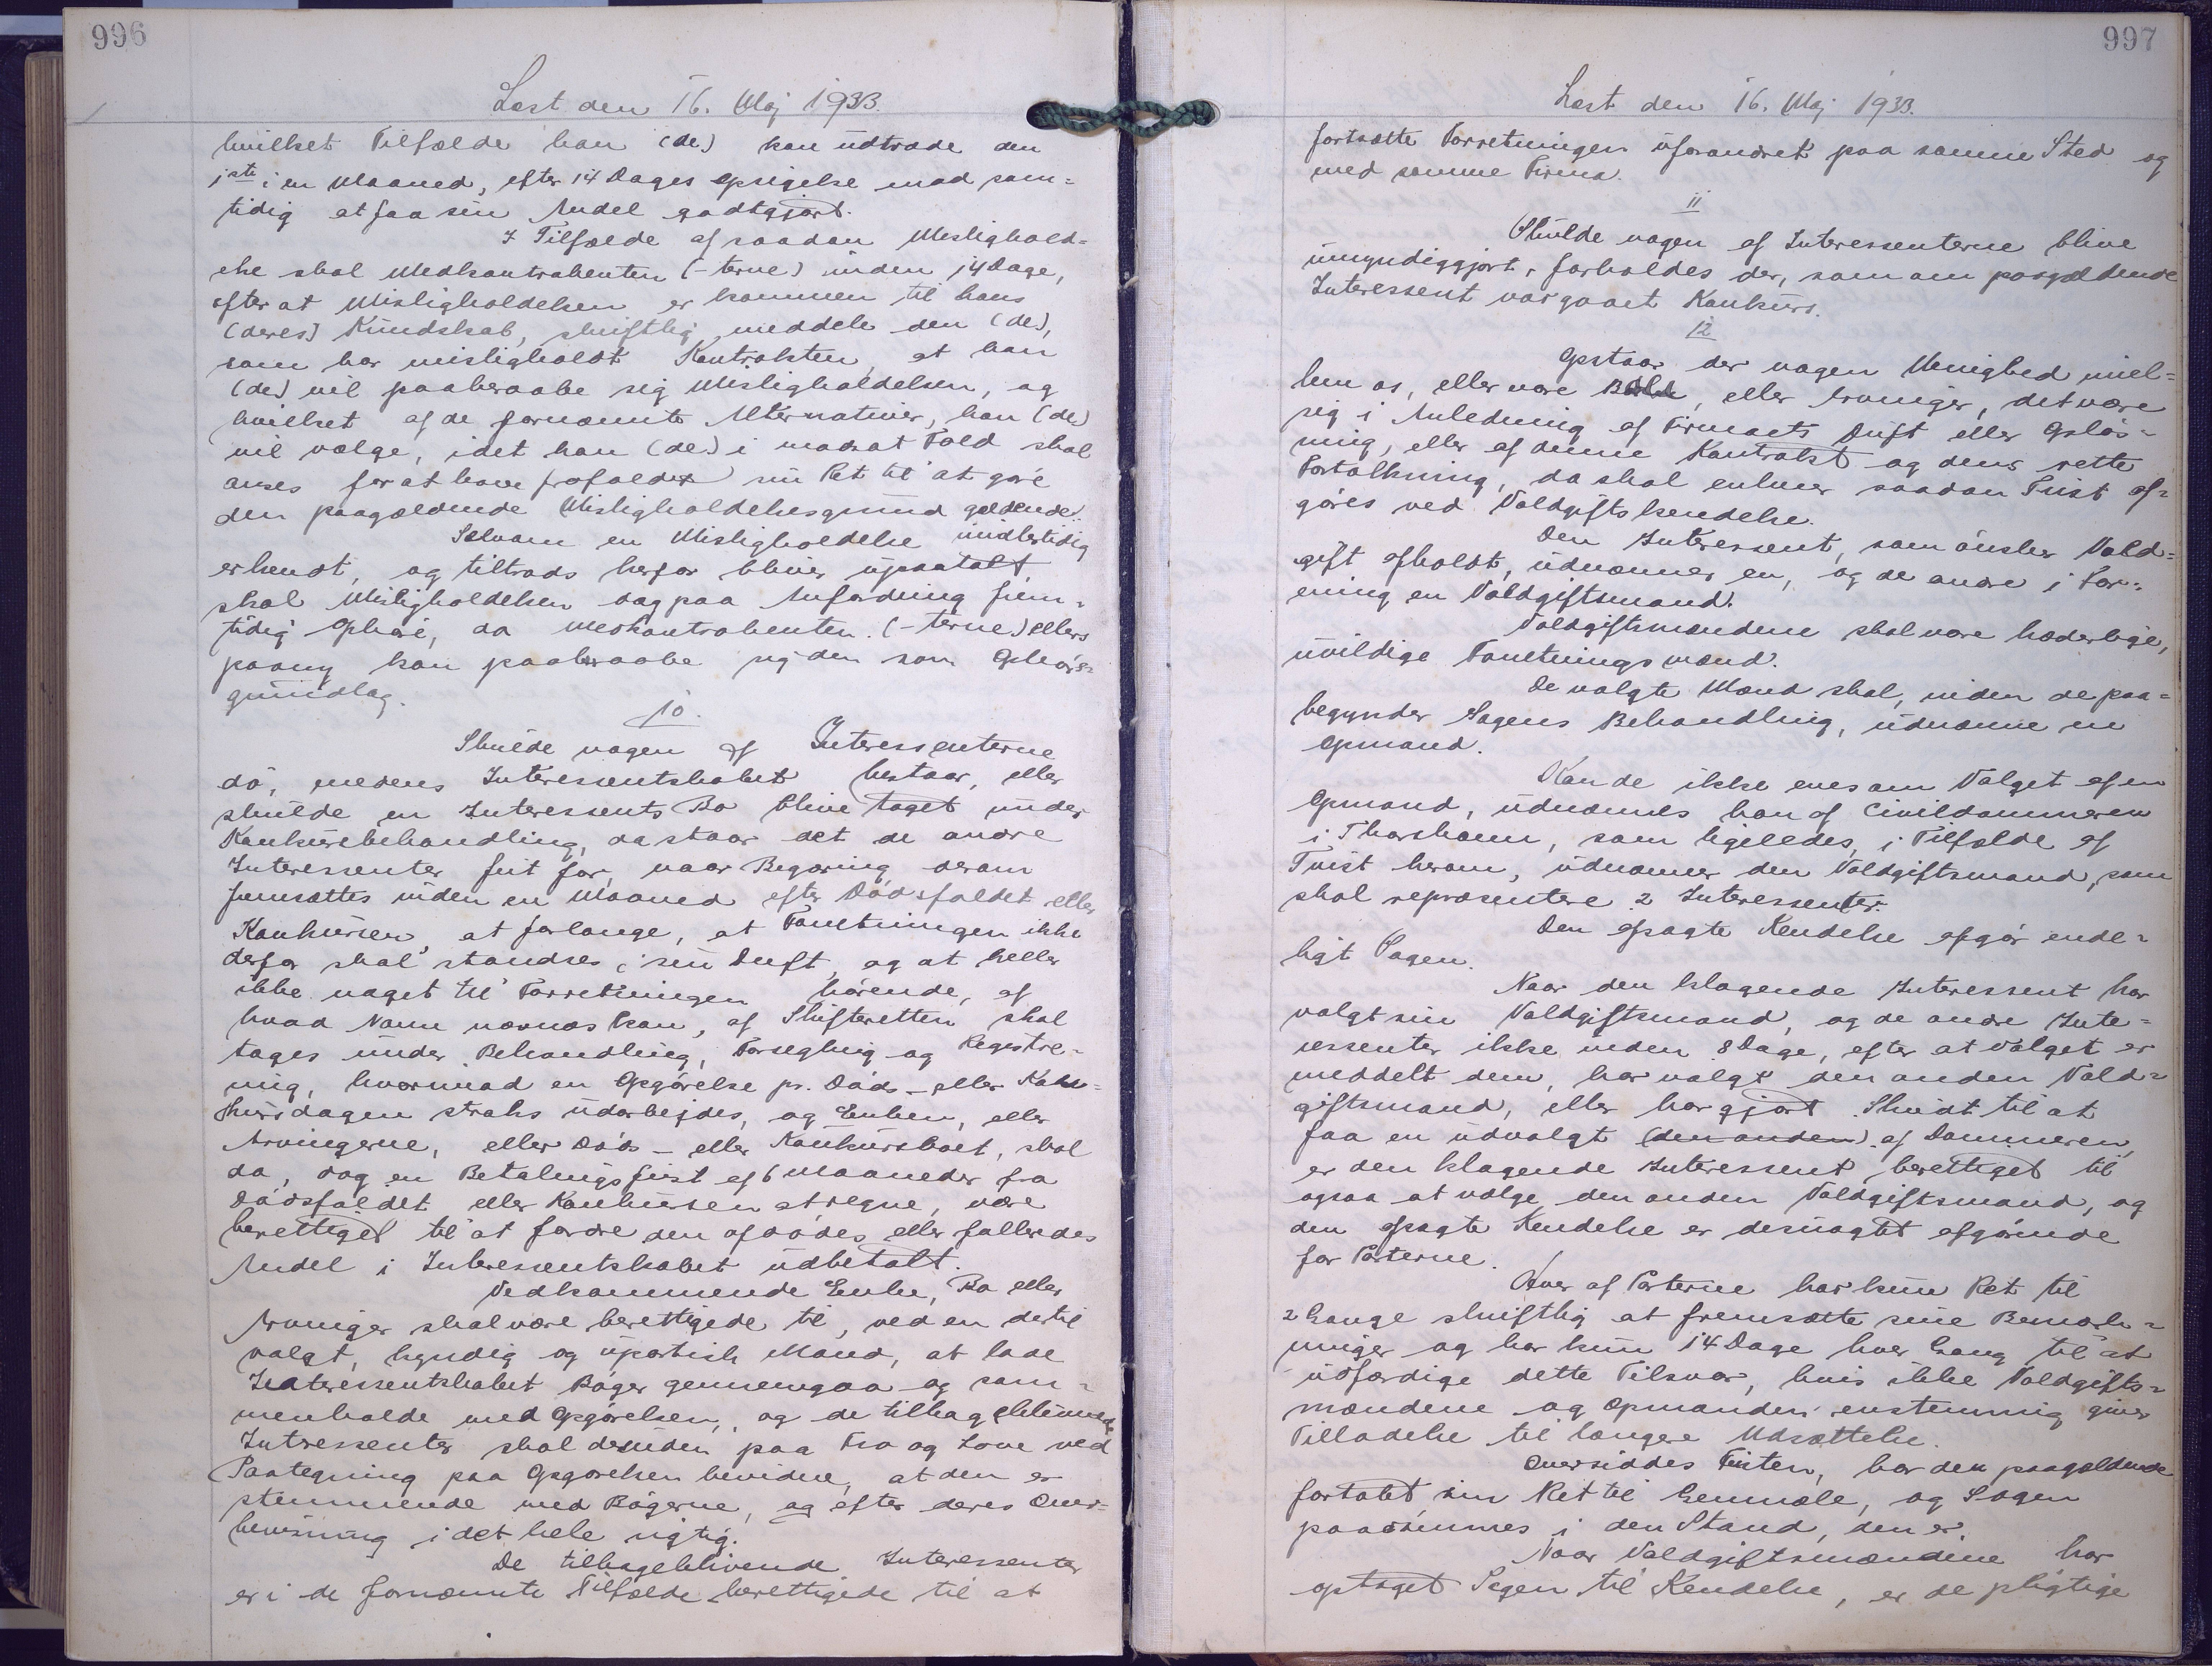 996
Læst den 16. Maj 1933.
hvilket Tilfælde han (de) kan udtræde den
1ste i en Maaned, efter 14 Dages Opsigelse mod sam=
tidig at faa sin Andel godtgjort.
I Tilfælde af saadan Mislighold=
else skal Medkontrahenten (-terne) inden 14 Dage,
efter at Misligholdelsen er kommen til hans
(deres) Kundskab, skriftlig meddele den (de),
som har misligholdt Kontrakten, at han
(de) vil paaberaabe sig Misligholdelsen, og
hvilket af de fornævnte Alternativer, han (de)
vil vælge, idet han (de) i modsat Fald skal
anses for at have frafaldet sin Ret til at göre
den paagældende Misligholdelsesgrund gældende.
Selvom en Misligholdelse imidlertidig
erkendt, og tiltrods herfor bliver upaatalt,
skal Misligholdelsen dog paa Anfordring frem=
tidig Ophöre, da Medkontrahenten (-terne) ellers
paany kan paaberaabe sig den som Ophörs=
grundlag.
10.
Skulde nogen af Interessenterne
dö, medens Interessentskabet bestaar, eller
skulde en Interessents Bo blive taget under
Konkursbehandling, da staar det de andre
Interessenter frit for, naar Begæring derom
fremsættes inden en Maaned efter Dödsfaldet eller
Konkursen, at forlange, at Forretningen ikke
derfor skal standses i sin Drift, og at heller
ikke noget til Forretningen hörende, af
hvad Navn nævnes kan, af Skifteretten skal
tages under Behandling, Forsegling og Registre=
ring, hvorimod en Opgörelse pr. Döds- eller Kon=
kursdagen straks udarbejdes, og Enken, eller
Arvingerne, eller Döds- eller Konkursboet, skal
da, dog en Betalingsfrist af 6 Maaneder fra
Dödsfaldet eller Konkursen at regne, være
berettiget til at fordre den afdödes eller fallendes
Andel i Interessentskabet udbetalt.
Vedkommende Enke, Bo eller
Arvinger skal være berettigede til, ved en dertil
valgt, kyndig og upartisk Mand, at lade
Interessentskabet Böger gennemgaa og sam=
menholde med Opgörelsen, og de tilbageblivende
Interessenter skal desuden paa Tro og Love ved
Paategning paa Opgörelsen bevidne, at den er
stemmende med Bögerne, og efter deres Over=
bevisning i det hele rigtig.
De tilbageblivende Interessenter
er i de fornævnte Tilfælde berettigede til at
997
Læst den 16. Maj 1933.
fortsætte Forretningen uforandret paa samme Sted og
med samme Firma.
11
Skulde nogen af Interessenterne blive
umyndiggjort, forholdes der, som om paagældende
Interessent var gaaet Konkurs.
12
Opstaar der nogen Uenighed mel=
lem os, eller vore Boer, eller Arvinger, det være
sig i Anledning af Firmaets Drift eller Oplös=
ning, eller af denne Kontrakt og dens rette
Fortolkning, da skal enhver saadan Tvist af=
göres ved Voldgiftskendelse.
Den Interessent, som önsker Vold=
gift afholdt, udnævner en, og de andre i For=
ening en Voldgiftsmand.
Voldgiftsmændene skal være hæderlige,
uvildige Forretningsmænd.
De valgte Mænd skal, inden de paa=
begynder Sagens Behandling, udnævne en
Opmand.
Kan de ikke enes om Valget af en
Opmand, udnævnes han af Civildommeren
i Thorshavn, som ligeledes, i Tilfælde af
Tvist herom, udnævner den Voldgiftsmand, som
skal repræsentere 2 Interessenter.
Den afsagte Kendelse afgör ende=
ligt Sagen.
Naar den klagende Interessent har
valgt sin Voldgiftsmand, og de andre Inte=
ressenter ikke inden 8 Dage, efter at Valget er
meddelt dem, har valgt den anden Vold=
giftsmand, eller har gjort Skridt til at
faa en udvalgt (den anden) af Dommeren,
er den klagende Interessent berettiget til
ogsaa at vælge den anden Voldgiftsmand, og
den afsagte Kendelse er desuagtet afgörende
for Parterne.
Hver af Parterne har kun Ret til
2 Gange skriftlig at fremsætte sine Bemærk=
ninger og har kun 14 Dage hver Gang til at
udfærdige dette Tilsvar, hvis ikke Voldgifts=
mændene og Opmanden enstemmig giver
Tilladelse til længere Udsættelse.
Oversiddes Fristen, har den paagældende
fortabt sin Ret til Genmæle, og Sagen
paadömmes i den Stand, den er.
Naar Voldgiftsmændene har
optaget Sagen til Kendelse, er de pligtige